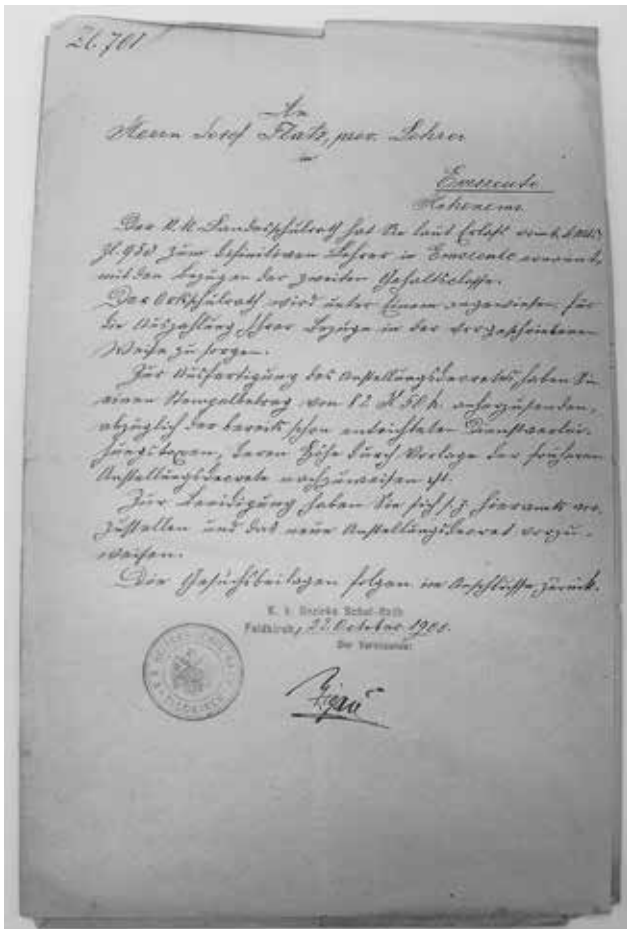 Zl. 701
An
Herrn Josef Flatz, prov. Lehrer
in
Emsreute
Hohenems
Der k.k. Landesschulrath hat Sie laut Erlaß vom 6. d. Mts.
Zl. 950 zum definitiven Lehrer in Emsreute ernannt,
mit den Bezügen der zweiten Gehaltsclasse.
Der Ortsschulrath wird unter Einem angewiesen, für
die Auszahlung Ihrer Bezüge in der vorgeschriebenen
Weise zu sorgen.
Zur Ausfertigung des Anstellungsdecretes haben Sie
einen Stempelbetrag von 82 K 50 h. anherzusenden,
abzüglich der bereits schon entrichteten Dienstverlei-
hungstaxen, deren Höhe durch Vorlage der früheren
Anstellungsdecrete nachzuweisen ist.
Zur Beeidigung haben Sie sich s. Z. hieramts vor-
zustellen und das neue Anstellungsdecret vorzu-
weisen.
Die Gesuchsbeilagen folgen im Anschlusse zurück.
K. k. Bezirks Schul-Rath
Feldkirch, 22. October 1908.
Der Vorsitzende: